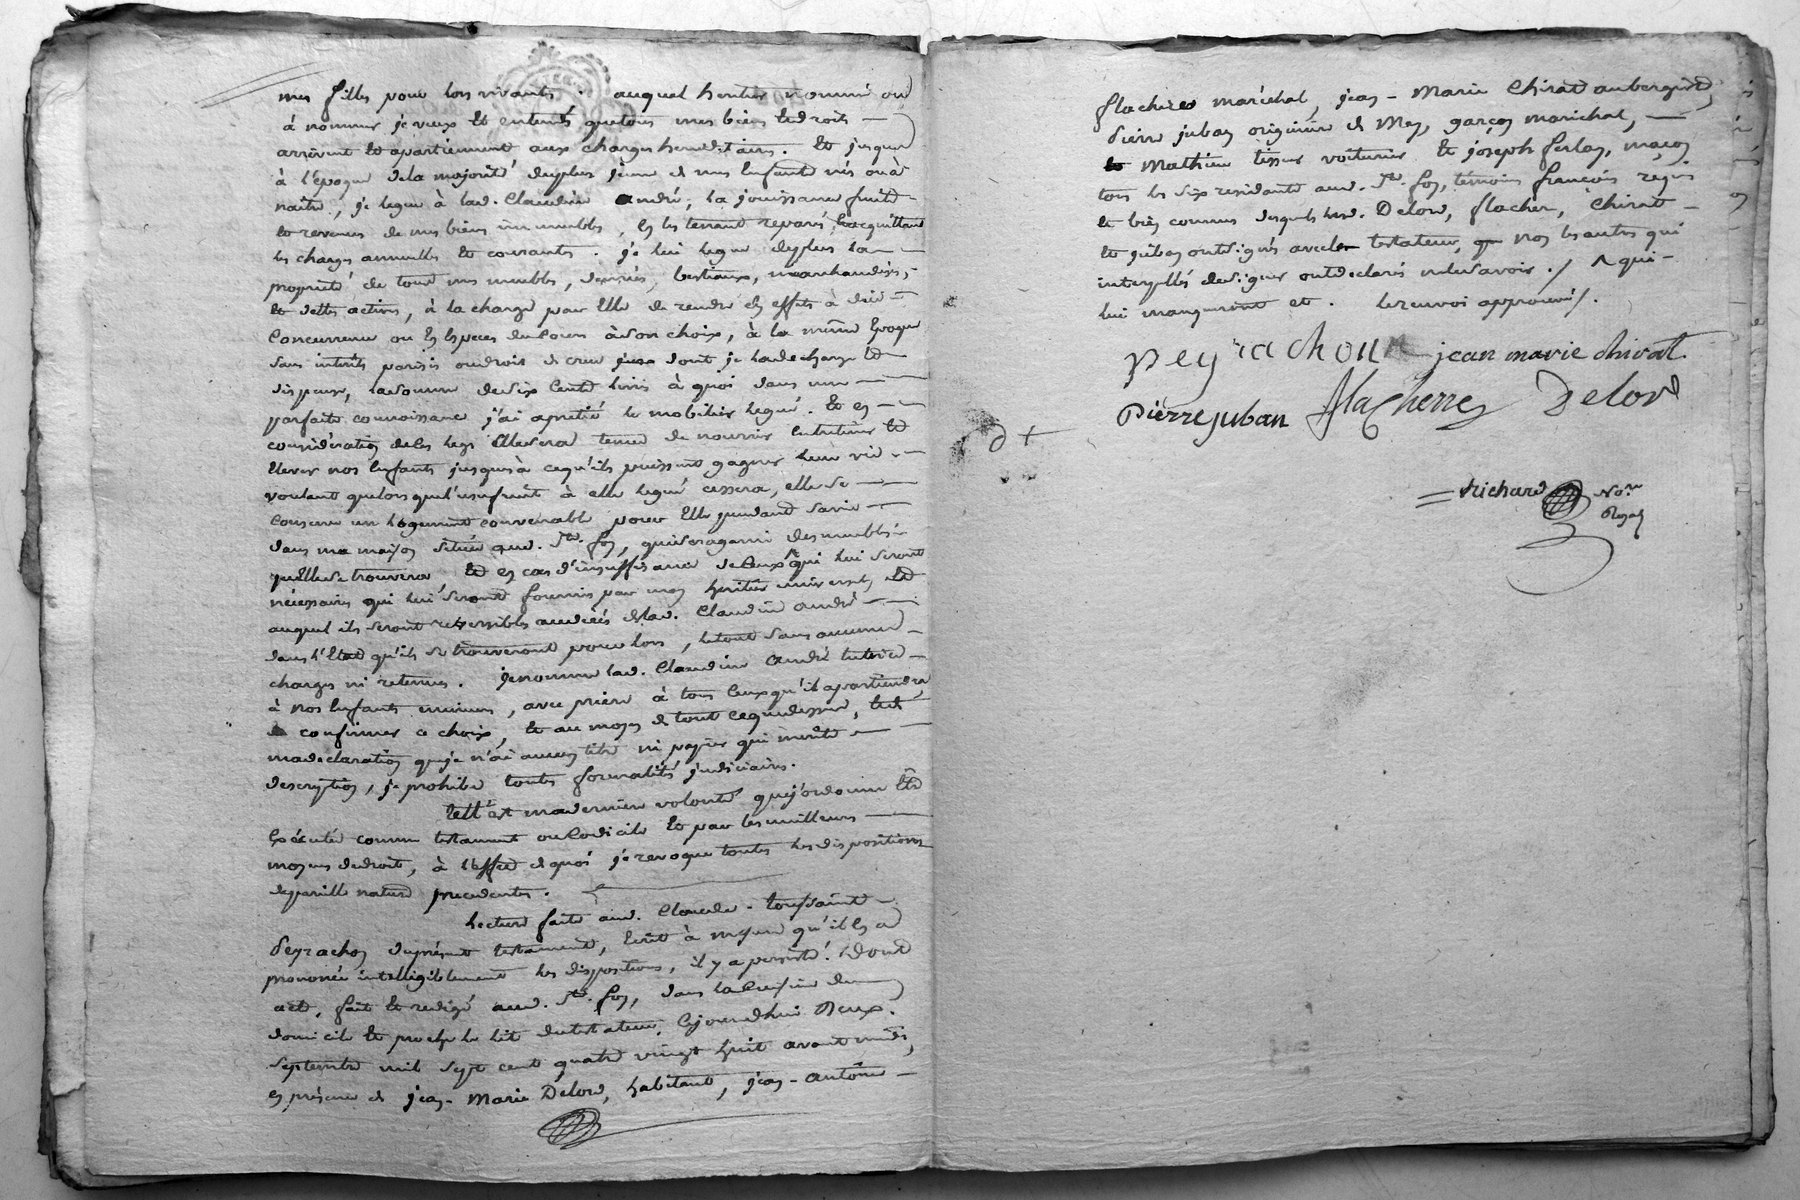 mes filles pour lors vivants. auquel heritier nommé ou
à nommer je veux et entends que tous mes biens et droits
arrivent et apartiennent aux charges hereditaires. et jusques
à l'epoque de la majorité du plus jeune de mes enfants nés ou à
naitre, je legue à lad. Claudine andré, la jouissance fruits
et revenus de mes biens immeubles, en les tenant reparés, en acquittant
les charges annuelles et courantes. je lui legue de plus la
proprieté de tous mes meubles, denrées, bestiaux, marchandises,
et dettes actives, à la charge par elle de rendre en effets à due
concurrence ou en especes de cours à son choix, à la même epoque
sans interêts parisis ou droit de crue dont je la decharge et
dispense, la somme de six cents livres à quoi dans une
parfaite connoissance j'ai apretié le mobilier legué. et en
consideration de ces legs elle sera tenue de nourrir entretenir et
elever nos enfants jusques à ce qu'ils puissent gagner leur vie.
voulant que lors que l'usufruit à elle legué cessera, elle se
conserve un logement convenable pour elle pendant sa vie
dans ma maison située aud. Ste. foy, qui sera garni des meubles
qu'elle se trouvera, et en cas d'insuffisance de ceux qui lui seront
nécessaires qui lui seront fournis par mon heritier universel et
auquel ils seront reversibles au décés de lad. Claudine andré
dans l'Etat qu'ils se trouveront pour lors, le tout sans aucunes
charges ni retenues. je nomme lad. Claudine andré tutrice
à nos enfants mineurs, avec priere à tous ceux qu'il apartiendra
de confirmer ce choix, et au moyen de tout ce que dessus, et de
ma declaration que je n'ai aucun titre ni papier qui merite
description, je prohibe toutes formalités judiciaires.
telle est ma derniere volonté que j'ordonne être
executée comme testament ou codicile et par les meilleurs
moyens de droit, à l'effet de quoi je revoque toutes les dispositions
de pareille nature precedentes.
Lecture faite aud. Claude-toussaint
Peyrachon du présent testament, ecrit à mesure qu'il en a
prononcé intelligiblement les dispositions, il y a persisté. Dont
acte, fait et redigé aud. Ste. foy, dans la cuisine du
domicile et proche le lit du testateur, cejourdhui Deux
septembre mil sept cent quatre vingt huit avant midi,
en présence de jean-Marie Delord, habitant, jean-antoine
flacherre maréchal, jean-Marie Chirat aubergiste,
Pierre juban originaire de Mey, garçon maréchal,
Mathieu tissur voiturier et joseph ferlay, maçon
tous les six residants aud. Ste. foy, témoins françois regis
et bien connus desquels lesd. Delord, flacher, Chirat
et juban ont signés avec le testateur, non les autres qui
interpellés de signer ont declarés ne le savoir ./ ^ qui
lui manqueront et. le renvoi approuvé /.
peyrachon jean marie chirat
Pierre juban flacherre Delord
richard No.re
Royal